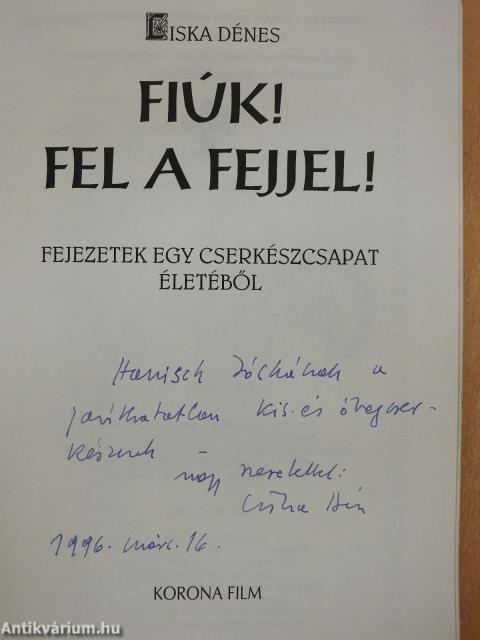 CSISKA DÉNES
FIÚK!
FEL A FEJJEL!
FEJEZETEK EGY CSERKÉSZCSAPAT
ÉLETÉBŐL
Hanisch Zóckának a
javíthatatlan kis- és öregcser-
késznek –
nagy szeretettel:
1996. márc. 16.
KORONA FILM
Antikvárium.hu